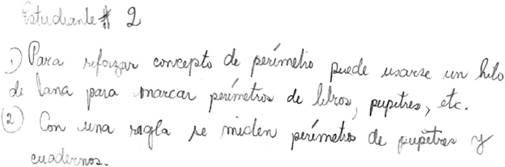 Estudiante # 2
1) Para reforzar concepto de perímetro puede usarse un hilo
de lana para marcar perímetros de libros, pupitres, etc.
2) Con una regla se miden perímetros de pupitres y
cuadernos.